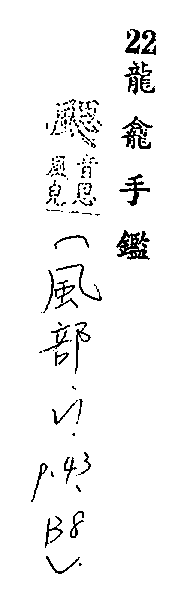 22 龍龕手鑑
颸 音思風皃 (風部 p.43. B8)